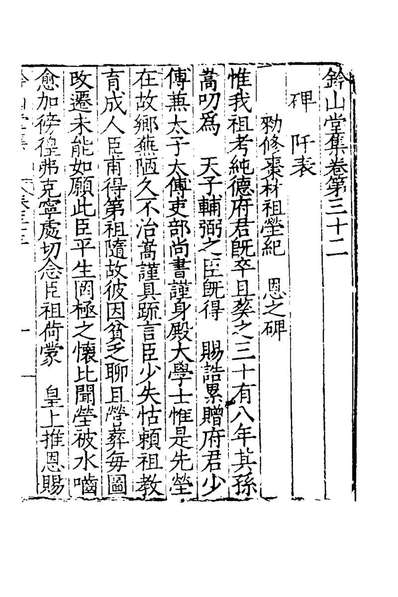 鈐山堂集卷第三十二
碑　阡表
勑修棗林祖塋紀　恩之碑
惟我祖考純德府君旣卒且葬之三十有八年其孫
嵩叨爲　天子輔弼之臣旣得　賜誥累贈府君少
傅兼太子太傅吏部尚書謹身殿大學士惟是先塋
在故鄉樵陋久不治嵩謹具疏言臣少失怙頼祖教
育成人臣甫得第祖隨故彼因貧乏聊且營葬每圖
改遷未能如願此臣平生罔極之懷比聞塋被水嚙
愈加徬徨弗克寧處切念臣祖荷蒙　皇上推恩賜